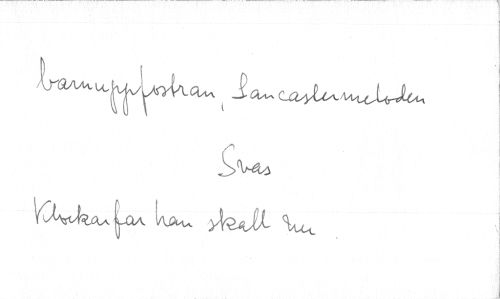 barnuppfostran, Lancastermetoden
Svas
Klockarfar han skall